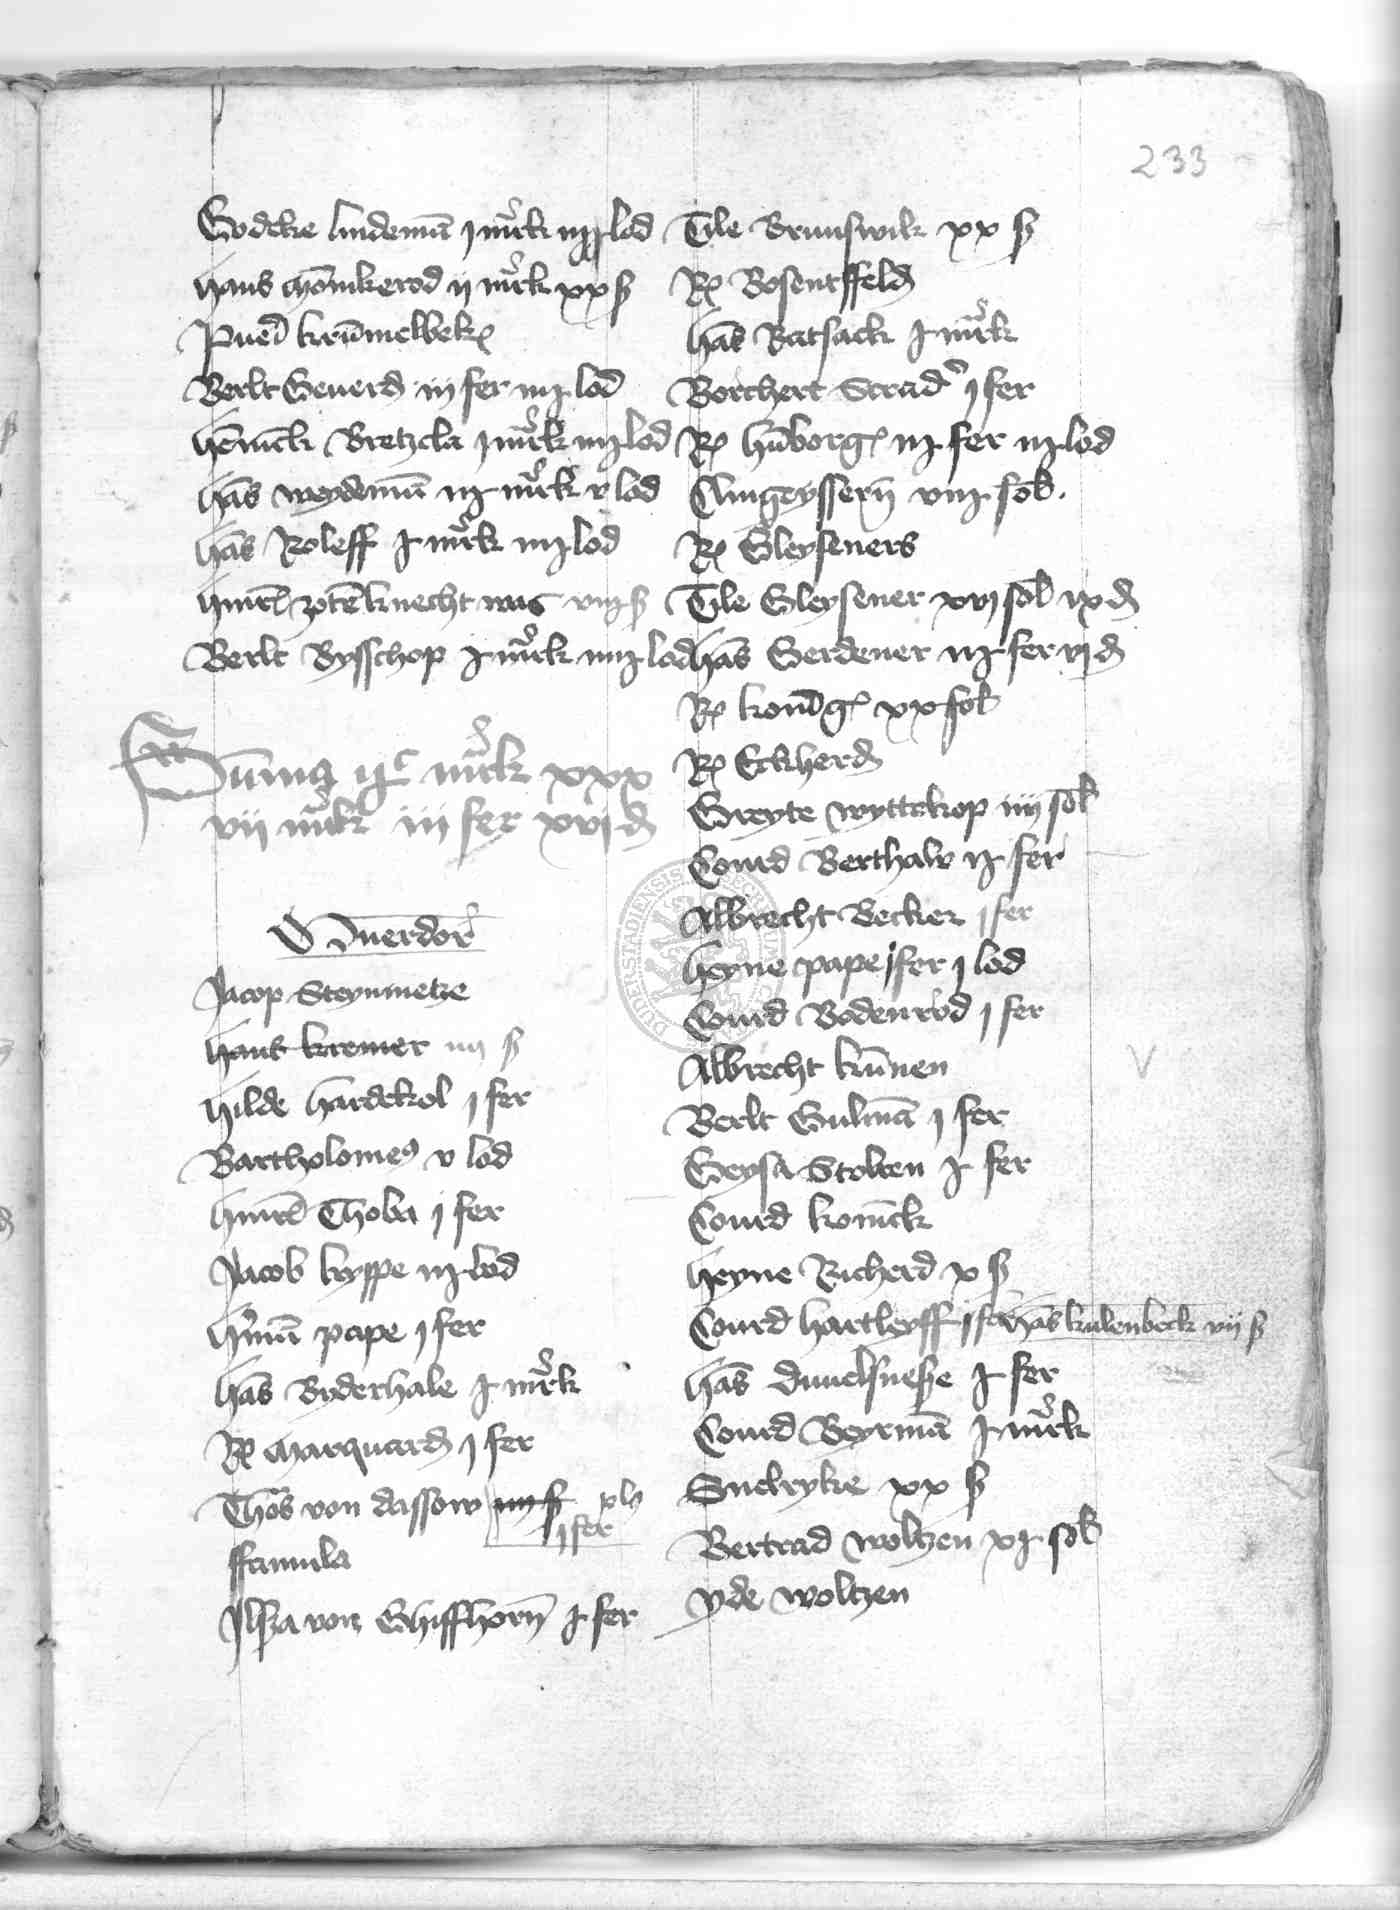 233
Godeke lindemā j mr̄k iij lod
hans Mōnkerod ij mr̄k xx ß
Pueri krūmelbek
Berlt Geuerd iij fer iiij lod
hēnrick Bretzela j mr̄k iiij lod
hās weydemā iij mr̄k v lod
hās Roleff j mr̄k iiij lod
hinr knecht was viij ß
Berlt Bysschop j mr̄k iiij lod
Sūma ijc mr̄k xxx
vij mr̄k iij fer xvj d
Nuerdor
Jacop Steynmetze
hans kremer iiij ß
hilde hardekol j fer
Bartholomeus v lod
hinr Thoba j fer
Jacob kyppe iij lod
hermā pape j fer
hās Byderhale j mr̄k
Rel Marquard j fer
Thōs von dassow iiij ß
j fer
ffamula
Jlsza von Ghiffhorn̄ j fer
Tile Brunswik xx ß
Rel Bosentffeld
hās Batsack j mr̄k
Borchert Strad j fer
Rel hūborg iij fer iij lod
Clingeyssern̄ viij sol
Rel Gleyseners
Tile Gleysener xvj sol ix d
hās Gerdener iij fer vj d
Rel koning xx sol
Rel Eckherd
Greyte wyttekop iiij sol
Courd Berthald ij fer
Albrecht Becker j fer
heyne pape j fer j lod
Courd Bodenrod j fer
Albrecht kūnen
Berlt Gulmā j fer
Geysa Stolten j fer
Courd konīck
heyne Richerd x ß
Courd hartleyff j fer hās kulenbeck vij ß
hās duuelsnese j fer
Courd Beyrmā j mr̄k
Snelryke xx ß
Bertrad woltzen xj sol
yde woltzen